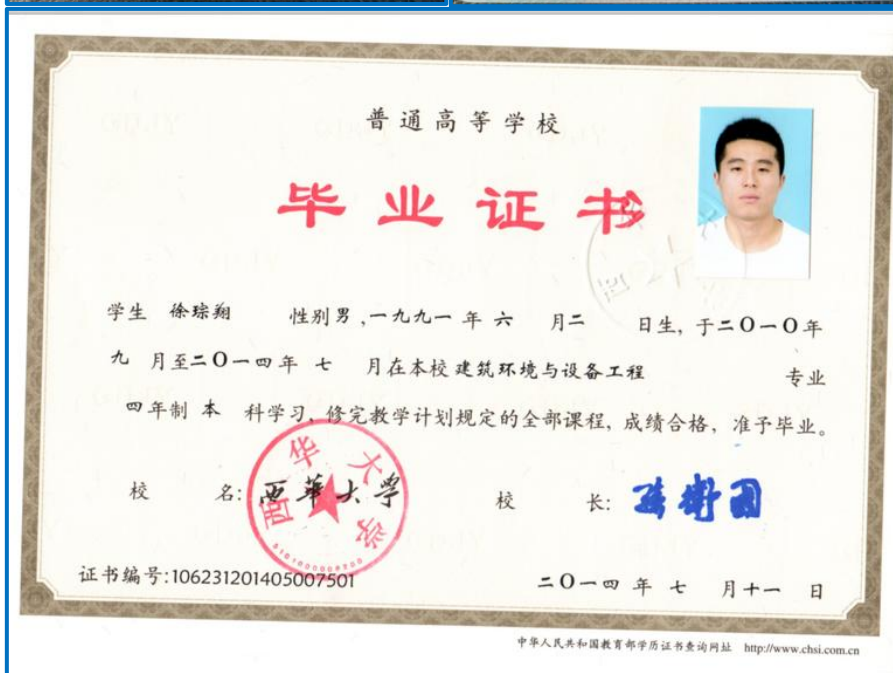 普通高等学校
毕业证书
学生 徐琮翔 性别男,一九九一年 六 月二 日生,于二〇一〇年
九 月至二〇一四年 七 月在本校建筑环境与设备工程 专业
四年制 本 科学习,修完教学计划规定的全部课程,成绩合格,准予毕业。
校 名:西華大學 校 长:
西华大学
5101000009700
证书编号:106231201405007501 二〇一四 年 七 月十一 日
中华人民共和国教育部学历证书查询网址 http://www.chsi.com.cn